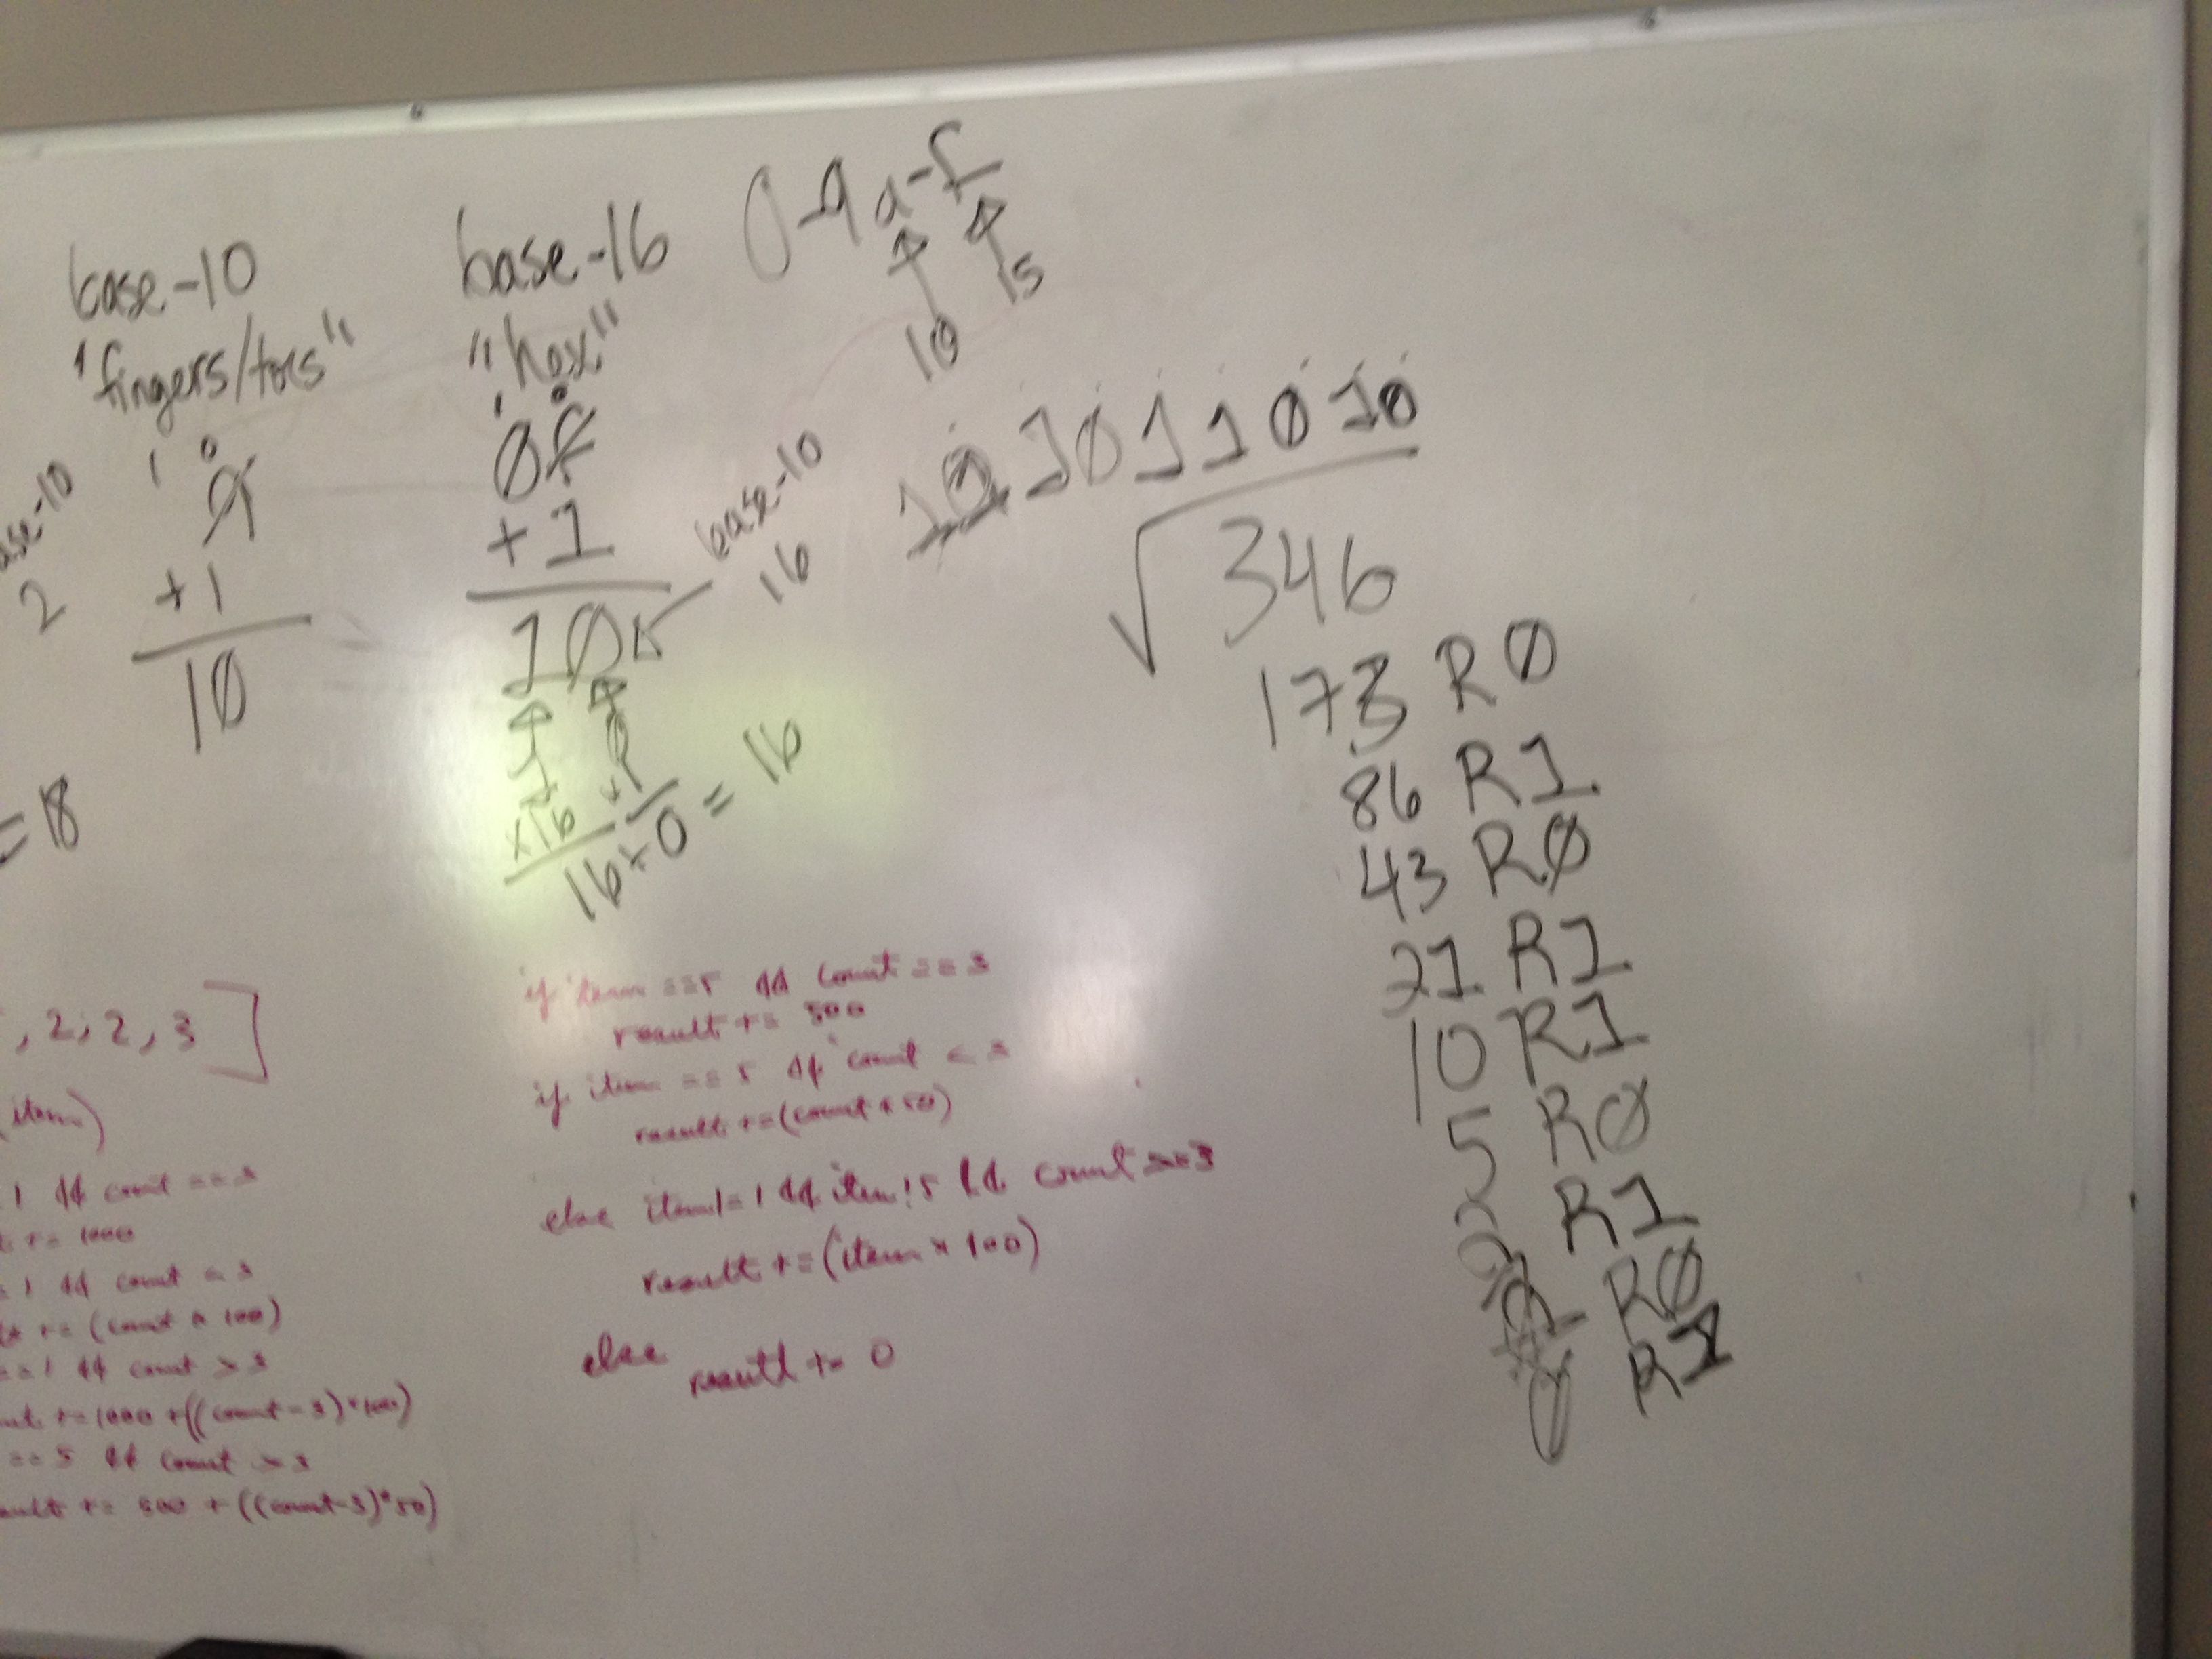 base-10
"fingers/toes"
1 0
9
+1
10
base-10
2
= 18
base-16
"hex"
1 0
0f
+1
10
base-10
16
1 0
x16 x1
16+0 = 16
0-9 a-f
10 15
101011010
346
173 R0
86 R1
43 R0
21 R1
10 R1
5 R0
2 R1
1 R0
0 R1
, 2, 2, 3 ]
item)
1 && count == 3
+= 1000
= 1 && count < 3
+= (count * 100)
== 1 && count > 3
+= 1000 + ((count - 3) * 100)
== 5 && count > 3
result += 500 + ((count-3)*50)
if item ==5 && count == 3
result += 500
if item == 5 && count < 3
result += (count * 50)
else item != 1 && item ! 5 && count >= 3
result += (item * 100)
else
result += 0